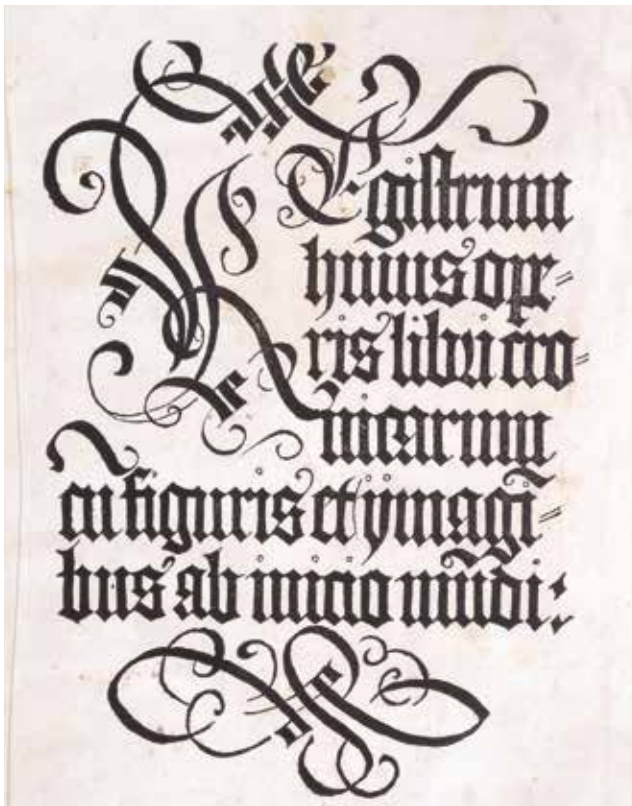 REgistrum
huius ope-
ris libri cro-
nicarum
cũ figuris et ymagĩ-
bus ab inicio mũdi: